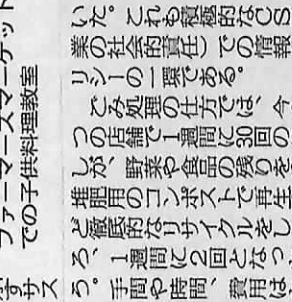 ファーマーズマーケット
での子供料理教室
すサス
いた。これも積極的なCS
業の社会的責任）での情報
リシーの一環である。
ごみ処理の仕方では、今
つの店舗で1週間に30回の
しが、野菜や食品の残りを
堆肥用のコンポストで再生
ど徹底的なリサイクルをし
ろ、1週間に2回となっ
う。手間や時間、費用は、